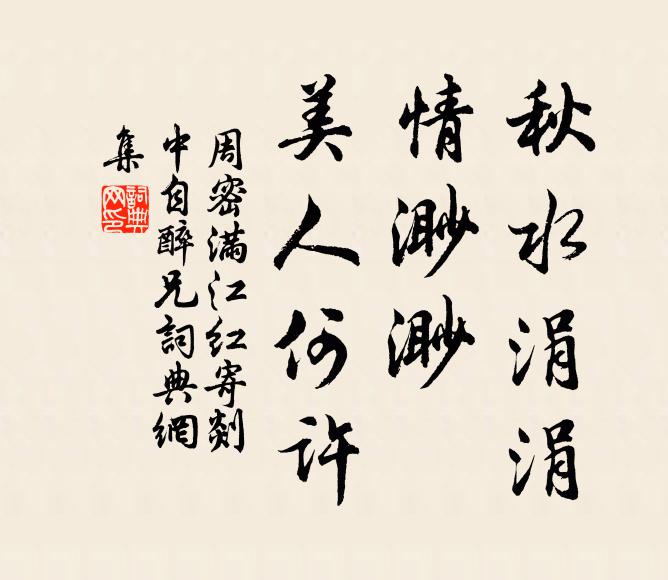 秋水涓涓
情渺渺
美人何许
周密满江红寄剡
中自醉兄詞典網
集
詞典網印